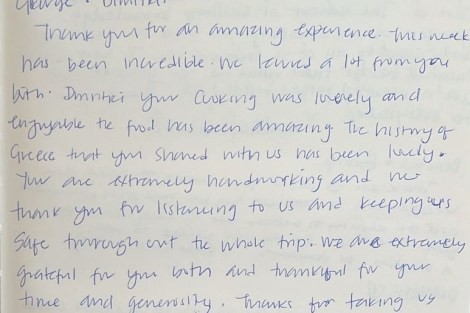 George + Dimitri.
Thank you for an amazing experience. This week
has been incredible. We learned a lot from you
both. Dimitri your cooking was lovely and
enjoyable the food has been amazing. The history of
Greece that you shared with us has been lovely.
You are extremely handworking and we
thank you for listening to us and keeping us
safe through out the whole trip. We are extremely
grateful for you both and thankful for your
time and generosity. Thanks for taking us